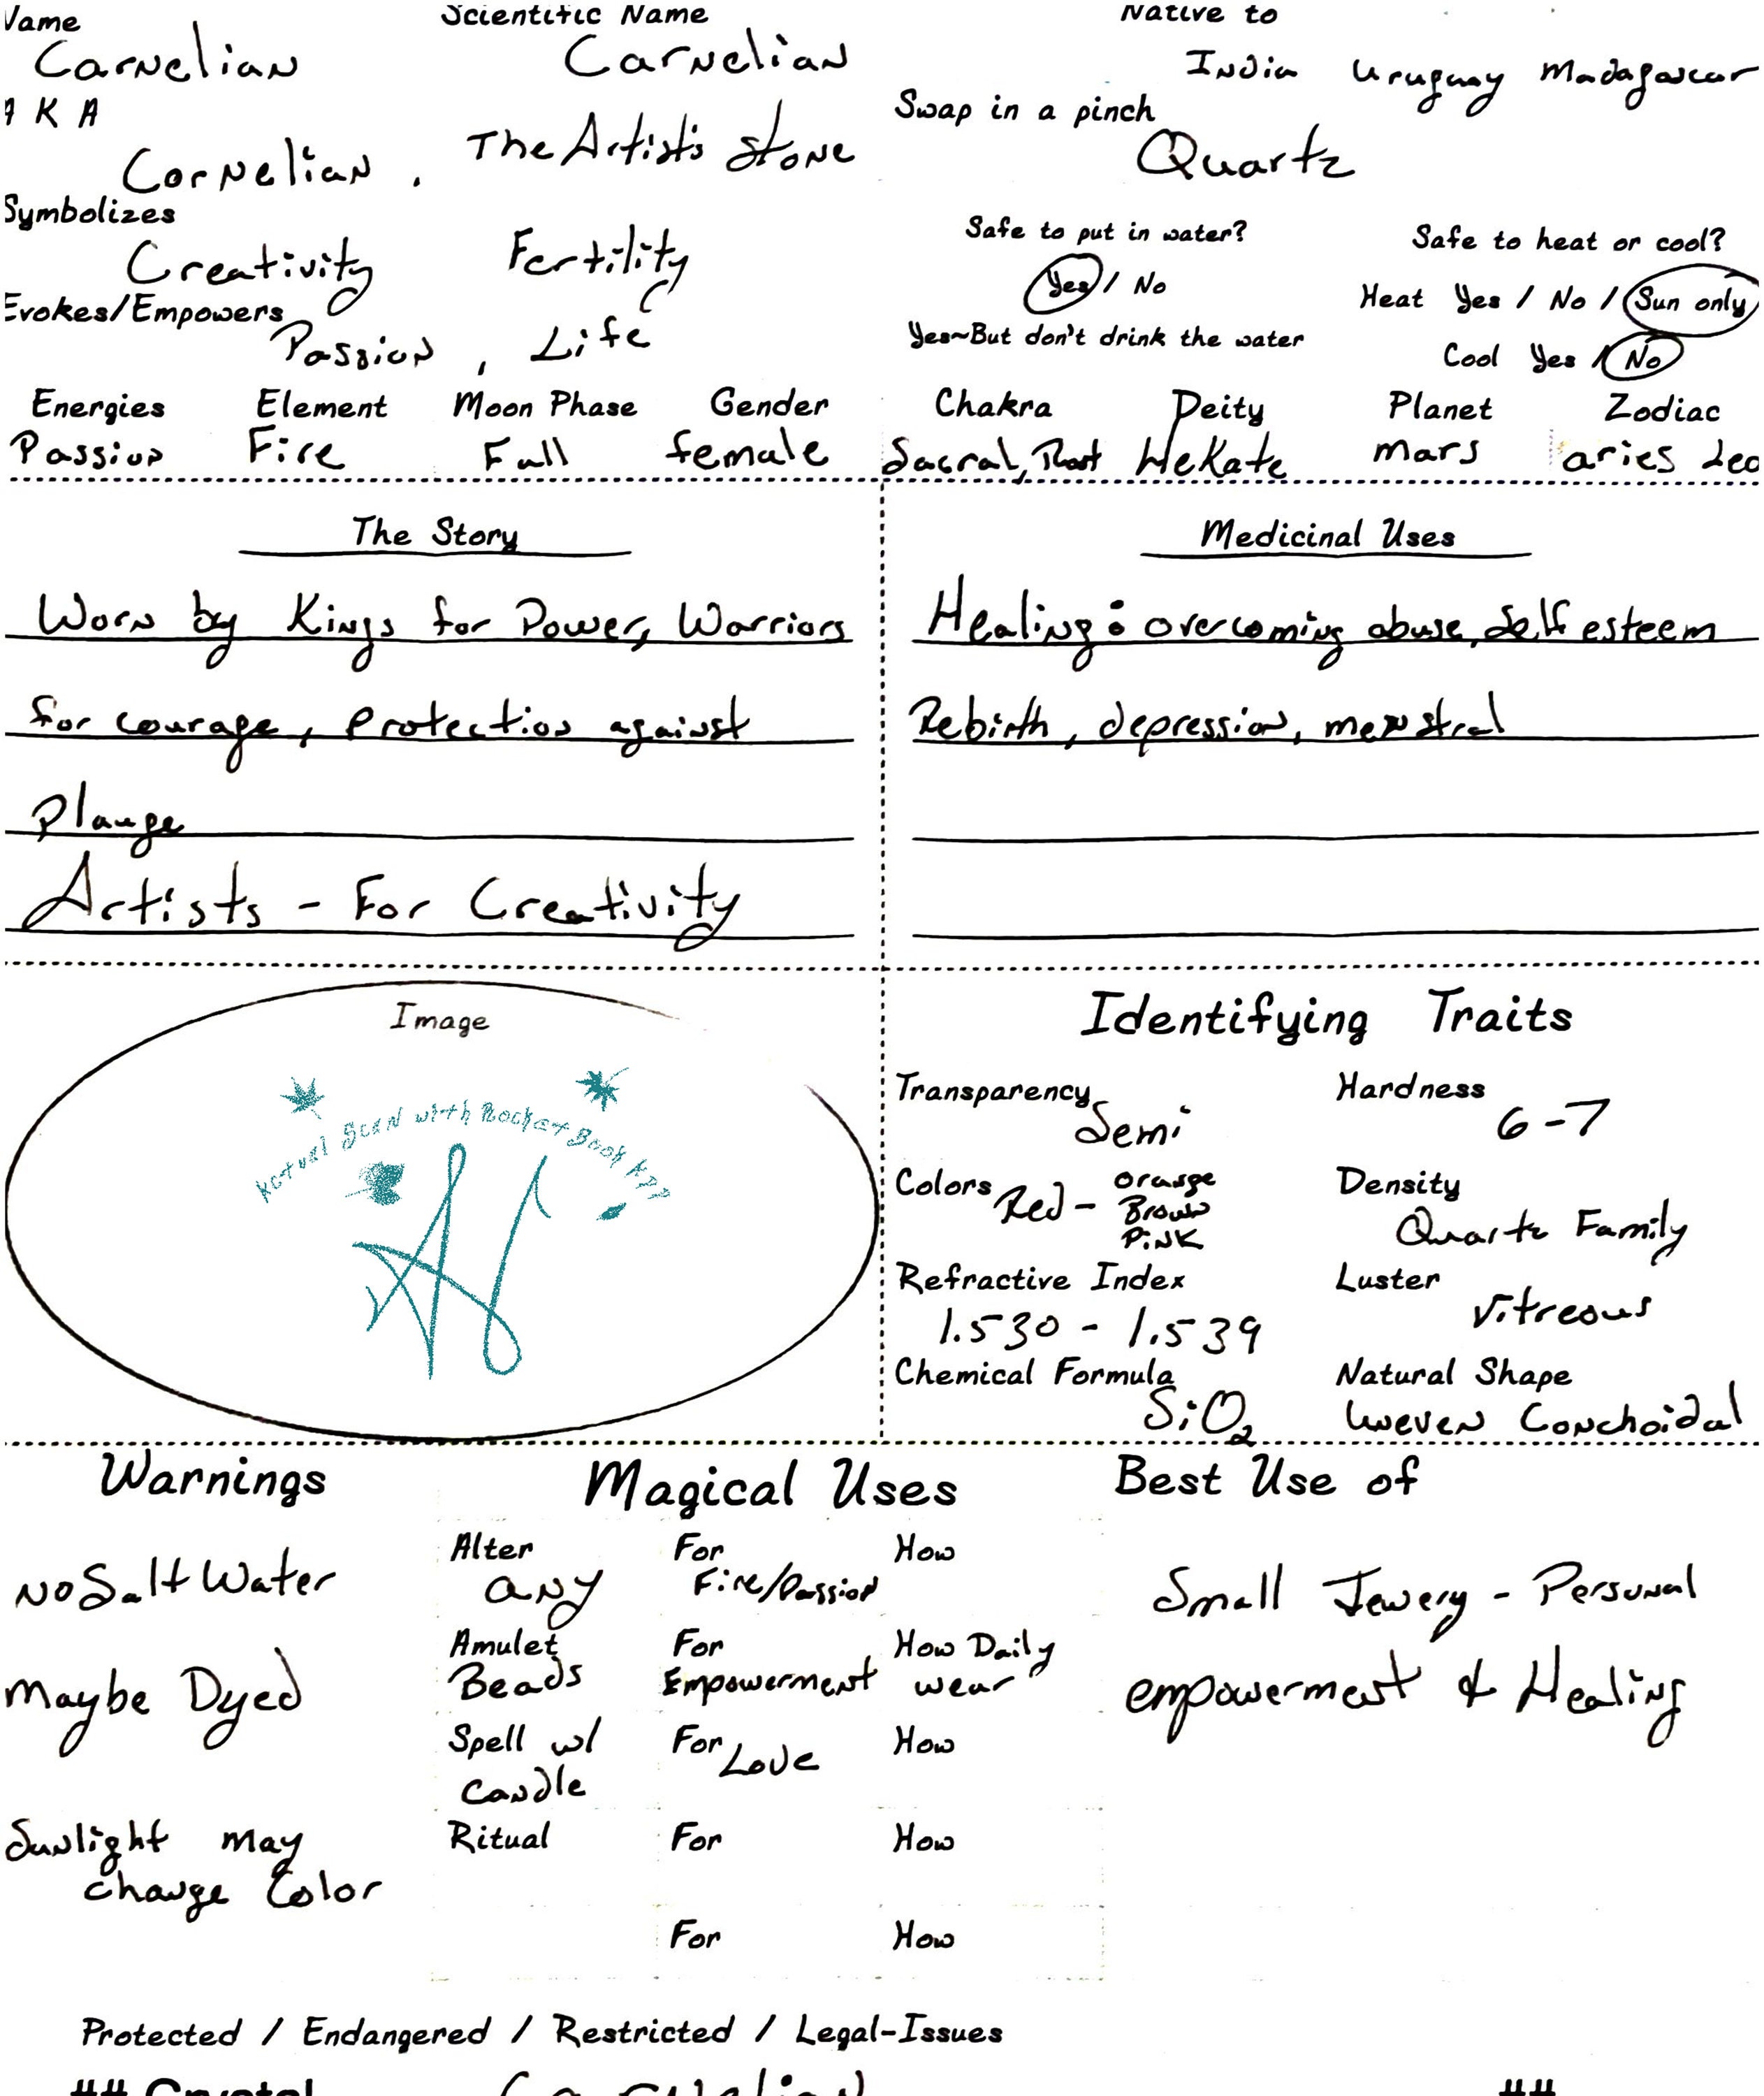 Name Scientific Name Native to
Carnelian Carnelian India Uruguay Madagascar
AKA Swap in a pinch
Cornelian, The Artist's Stone Quartz
Symbolizes Safe to put in water? Safe to heat or cool?
Creativity Fertility Yes / No Heat Yes / No / Sun only
Evokes/Empowers Yes~But don't drink the water
Passion, Life Cool Yes / No
Energies Element Moon Phase Gender Chakra Deity Planet Zodiac
Passion Fire Full female Sacral, Root Hekate mars aries Leo
The Story
Worn by Kings for Power, Warriors
for courage, protection against
Plauge
Artists - For Creativity
Medicinal Uses
Healing: overcoming abuse, Self esteem
Rebirth, depression, menstral
Image
Natural Scan with Rocket Book App
Identifying Traits
Transparency Hardness
Semi 6-7
Colors Red - Orange Brown Pink
Density
Quartz Family
Refractive Index Luster
1.530 - 1.539 Vitreous
Chemical Formula Natural Shape
SiO2 Uneven Conchoidal
Warnings
No Salt Water
Maybe Dyed
Sunlight may
change Color
Magical Uses
Alter For How
any Fire/Passion
Amulet For How Daily
Beads Empowerment wear
Spell w/ For Love How
Candle
Ritual For How
For How
Best Use of
Small Jewery - Personal
empowerment & Healing
Protected / Endangered / Restricted / Legal-Issues
## Crystal Carnelian ##